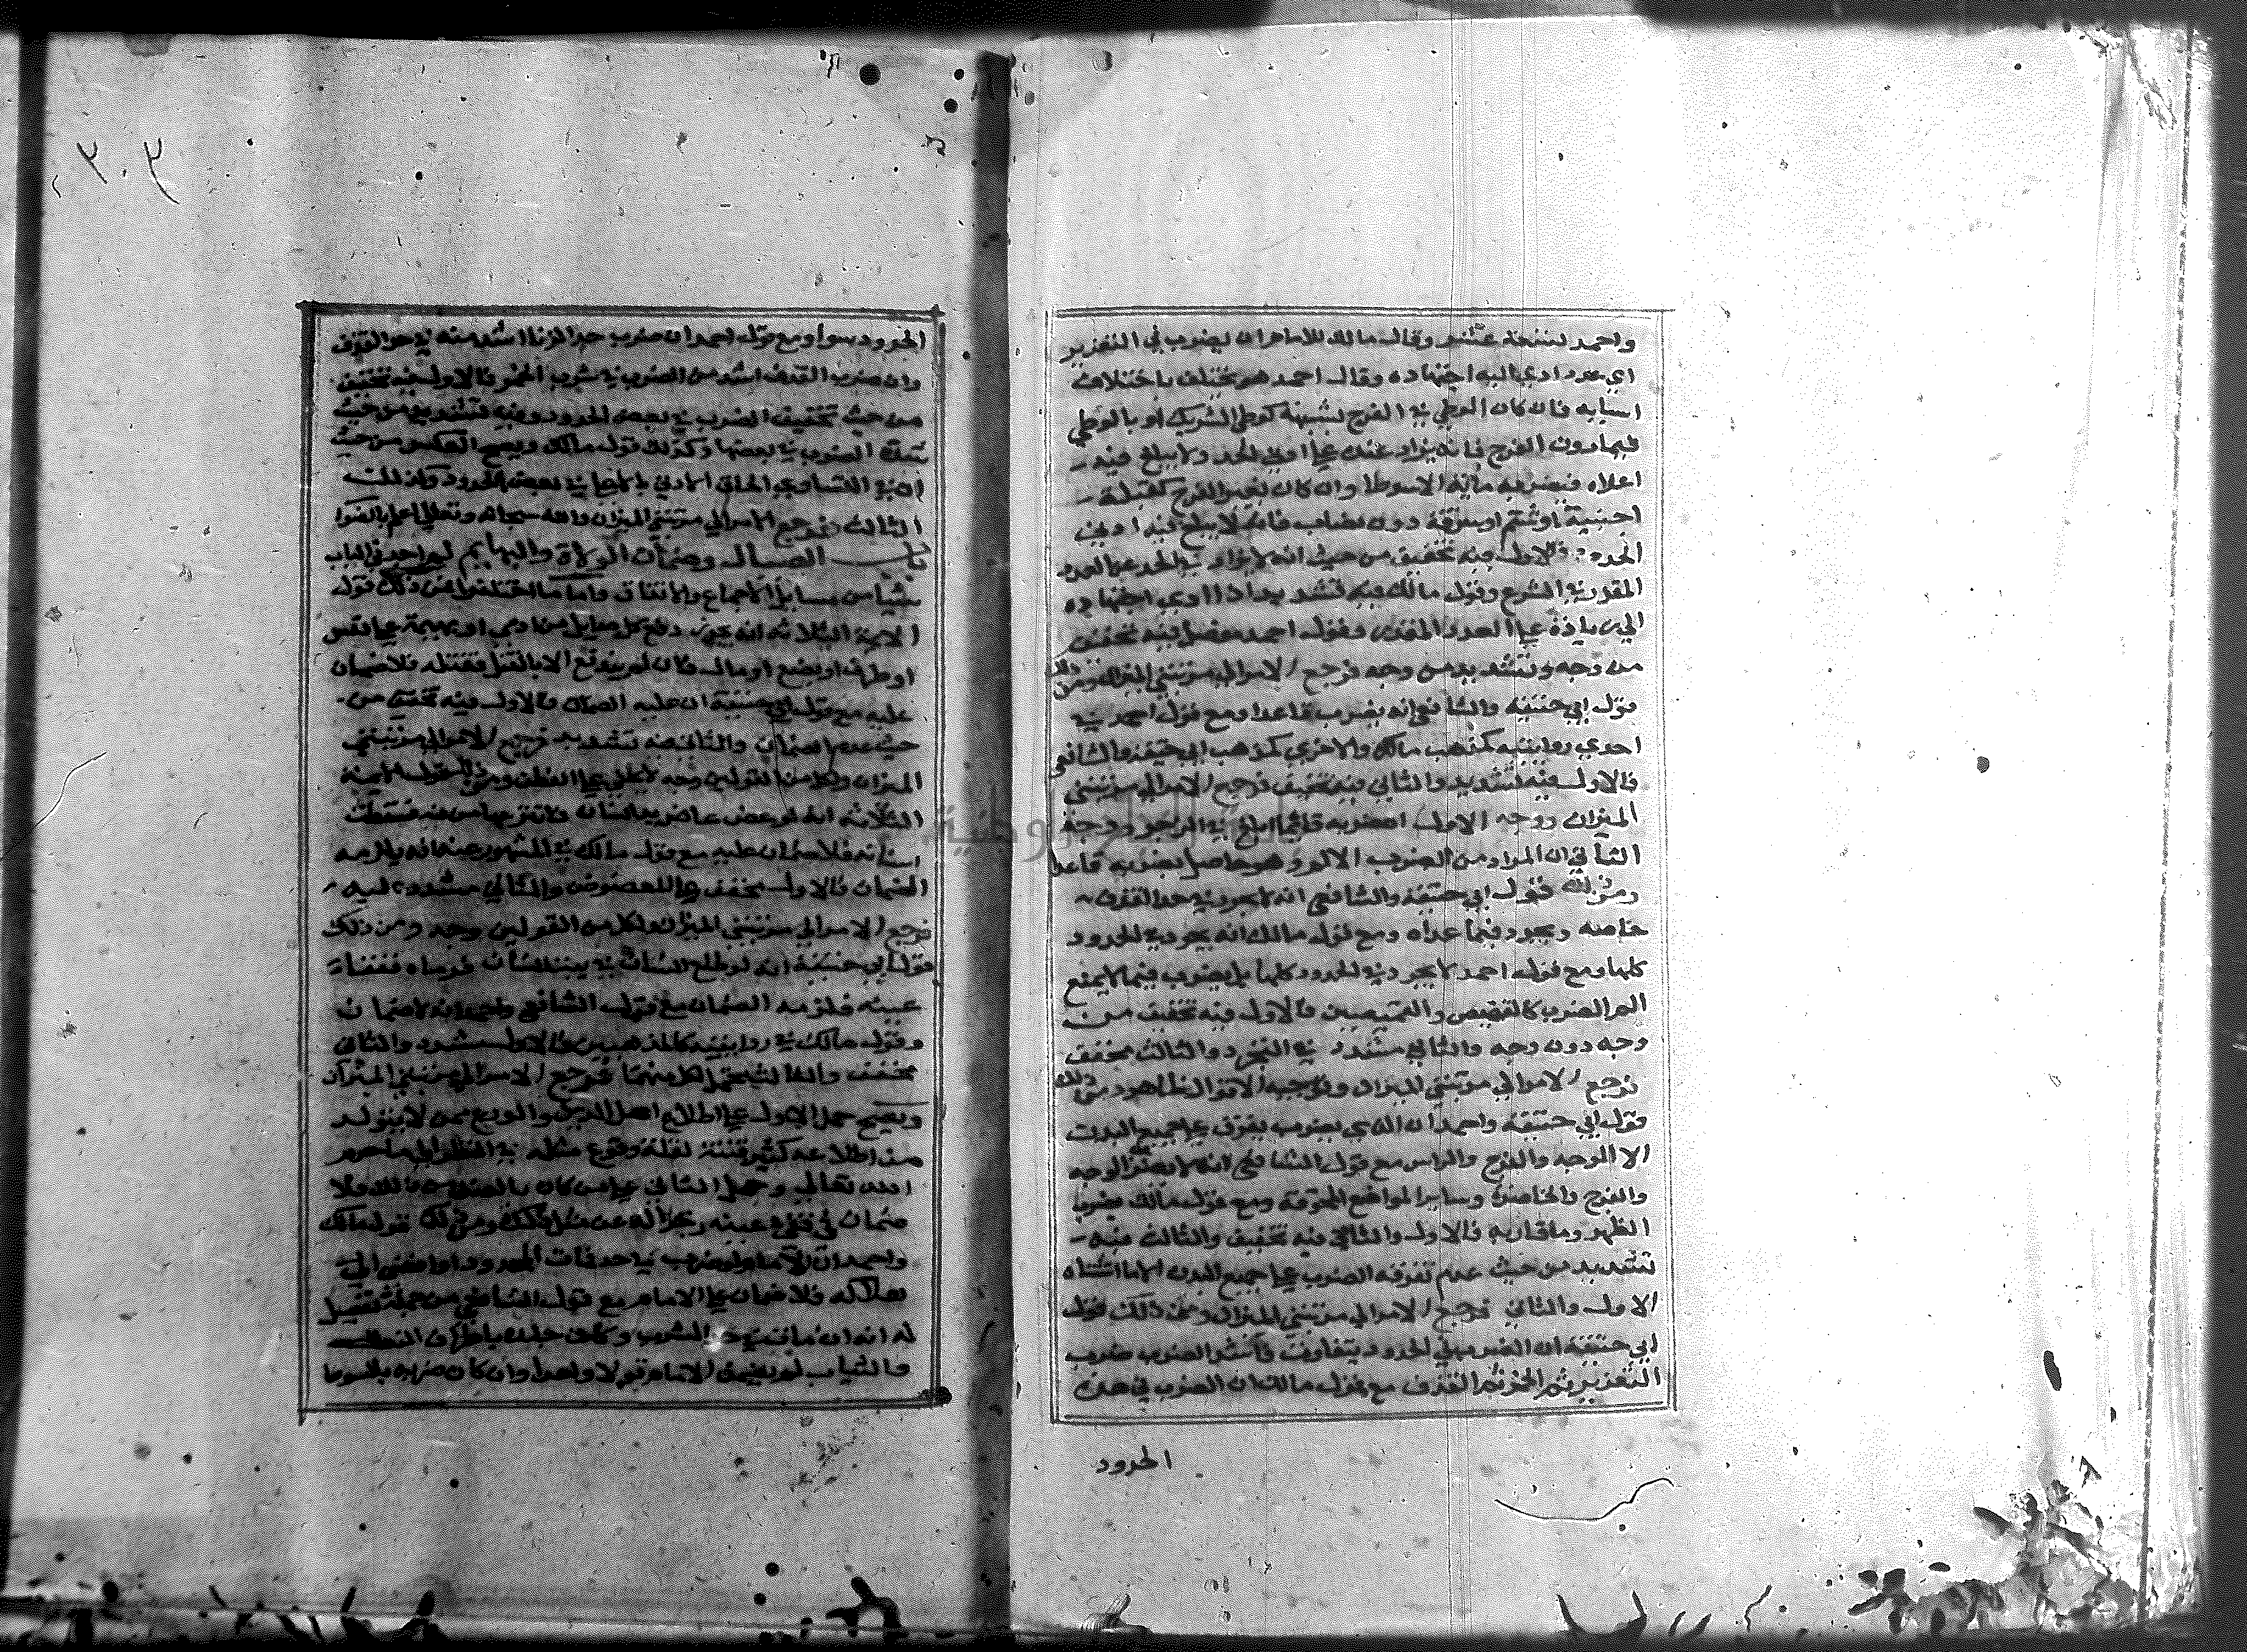 واحمد تسعة عشر وقال مالك للامام ان يضرب في التعزير
اي عدد ادى اليه اجتهاده وقال احمد هو يختلف باختلاف
اسبابه فان كان الوطي في الفرج بشبهة كوطي الشريك او بالوطي
فيما دون الفرج فانه يزاد عنده على ادنى الحد ولا يبلغ فيه
اعلاه فيضربه ماية الا سوطا وان كان بغير الفرج كقبلة
اجنبية اوشتم اوسرقة دون نصاب فانه لا يبلغ فيه ادنى
الحدود فالاول فيه تخفيف من حيث انه لا يزاد في الحد عن العدد
المقدر في الشرع وقول مالك فيه تشديد اذا ادى اجتهاده
الى زيادة على العدد المقدر وقول احمد مفصل فيه تخفيف
من وجه وتشديد من وجه فرجع الامر الى مرتبتي الميزان ومن ذلك
قول ابي حنيفة والشافعي انه يضرب قاعدا ومع قول احمد في
احدى روايتيه كمذهب مالك والاخرى كمذهب ابي حنيفة والشافعي
فالاول فيه تشديد والثاني فيه تخفيف فرجع الامر الى مرتبتي
الميزان ووجه الاول ان ضربه قايما ابلغ في الزجر ووجه
الثاني ان المراد من الضرب الالم وهو حاصل بضربه قاعدا
ومن ذلك قول ابي حنيفة والشافعي انه لا يجرد في حد القذف
خاصة ويجرد فيما عداه ومع قول مالك انه يجرد في الحدود
كلها ومع قول احمد لا يجرد في الحدود كلها بل يضرب فيما لا يمنع
الم الضرب كالقميص والقميصين فالاول فيه تخفيف من
وجه دون وجه والثاني مشدد في التجرد والثالث مخفف
فرجع الامر الى مرتبتي الميزان وتوجيه الاقوال ظاهر ومن ذلك
قول ابي حنيفة واحمد ان الذي يضرب يفرق على جميع البدن
الا الوجه والفرج والراس مع قول الشافعي انه لا يضرب الوجه
والفرج والخاصرة وساير المواضع المخوفة ومع قول مالك يضرب
الظهر وما قاربه فالاول والثاني فيه تخفيف والثالث فيه
تشديد من حيث عدم تفرقه الضرب على جميع البدن الا ما استثناه
الاول والثاني فرجع الامر الى مرتبتي الميزان ومن ذلك قول
ابي حنيفة ان الضرب في الحدود يتفاوت فاشد الضرب ضرب
التعزير ثم الخمر ثم القذف مع قول مالك ان الضرب في هذه
الحدود
٢٠٢
الحدود سواء ومع قول احمد ان ضرب حد الزنا اشد منه في حد القذف
وان ضرب القذف اشد من الضرب في شرب الخمر فالاول فيه تخفيف
من حيث تخفيف الضرب في بعض الحدود وفيه تشديد من حيث
شدة الضرب في بعضها وكذلك قول مالك ويصح العكس من حيث
ان في التساوي الحاق الادنى بالاعلى في بعض الحدود وكذلك
الثالث فرجع الامر الى مرتبتي الميزان والله سبحانه وتعالى اعلم بالصواب
باب الصيال وضمان الولاة والبهايم لم اجد في الباب
شيا من مسايل الاجماع والاتفاق واما ما اختلفوا فيه فمن ذلك قول
الايمة الثلاثة انه يجوز دفع كل صايل من ادمي او بهيمة على نفس
او طرف او بضع او مال فان لم يندفع الا بالقتل فقتله فلا ضمان
عليه مع قول ابي حنيفة ان عليه الضمان فالاول فيه تخفيف من
حيث عدم الضمان والثاني فيه تشديد فرجع الامر الى مرتبتي
الميزان ولكل من القولين وجه لا يخفى على الفطن ومن ذلك قول الايمة
الثلاثة انه لو عض عاض يد انسان فانتزعها من فيه فسقطت
اسنانه فلا ضمان عليه مع قول مالك في المشهور عنه انه يلزمه
الضمان فالاول مخفف على المعضوض والثاني مشدد عليه
فرجع الامر الى مرتبتي الميزان ولكل من القولين وجه ومن ذلك
قول ابي حنيفة انه لو اطلع انسان في بيت انسان فرماه ففقأ
عينه فلزمه الضمان مع قول الشافعي واحمد انه لا ضمان
وقول مالك في روايتيه كالمذهبين فالاول مشدد والثاني
مخفف والثالث محتمل لكل منهما فرجع الامر الى مرتبتي الميزان
ويصح حمل الاول على اطلاع اهل الدين والورع ممن لا يتولد
من اطلاعه كثير فتنة لقلة وقوع مثله في النظر الى ما حرم
الله تعالى وحمل الثاني على من كان بالضد من ذلك فلا
ضمان في فقئ عينه زجرا له عن مثل ذلك ومن ذلك قول مالك
واحمد ان الامام لو ضرب في احد فات المحدود اذا افضى الى
هلاكه فلا ضمان على الامام مع قول الشافعي من جملة تفصيل
له انه ان مات في حد الشرب وكان جلده باطراف النعال
والثياب لم يضمن الامام قولا واحدا وان كان ضربه بالسوط